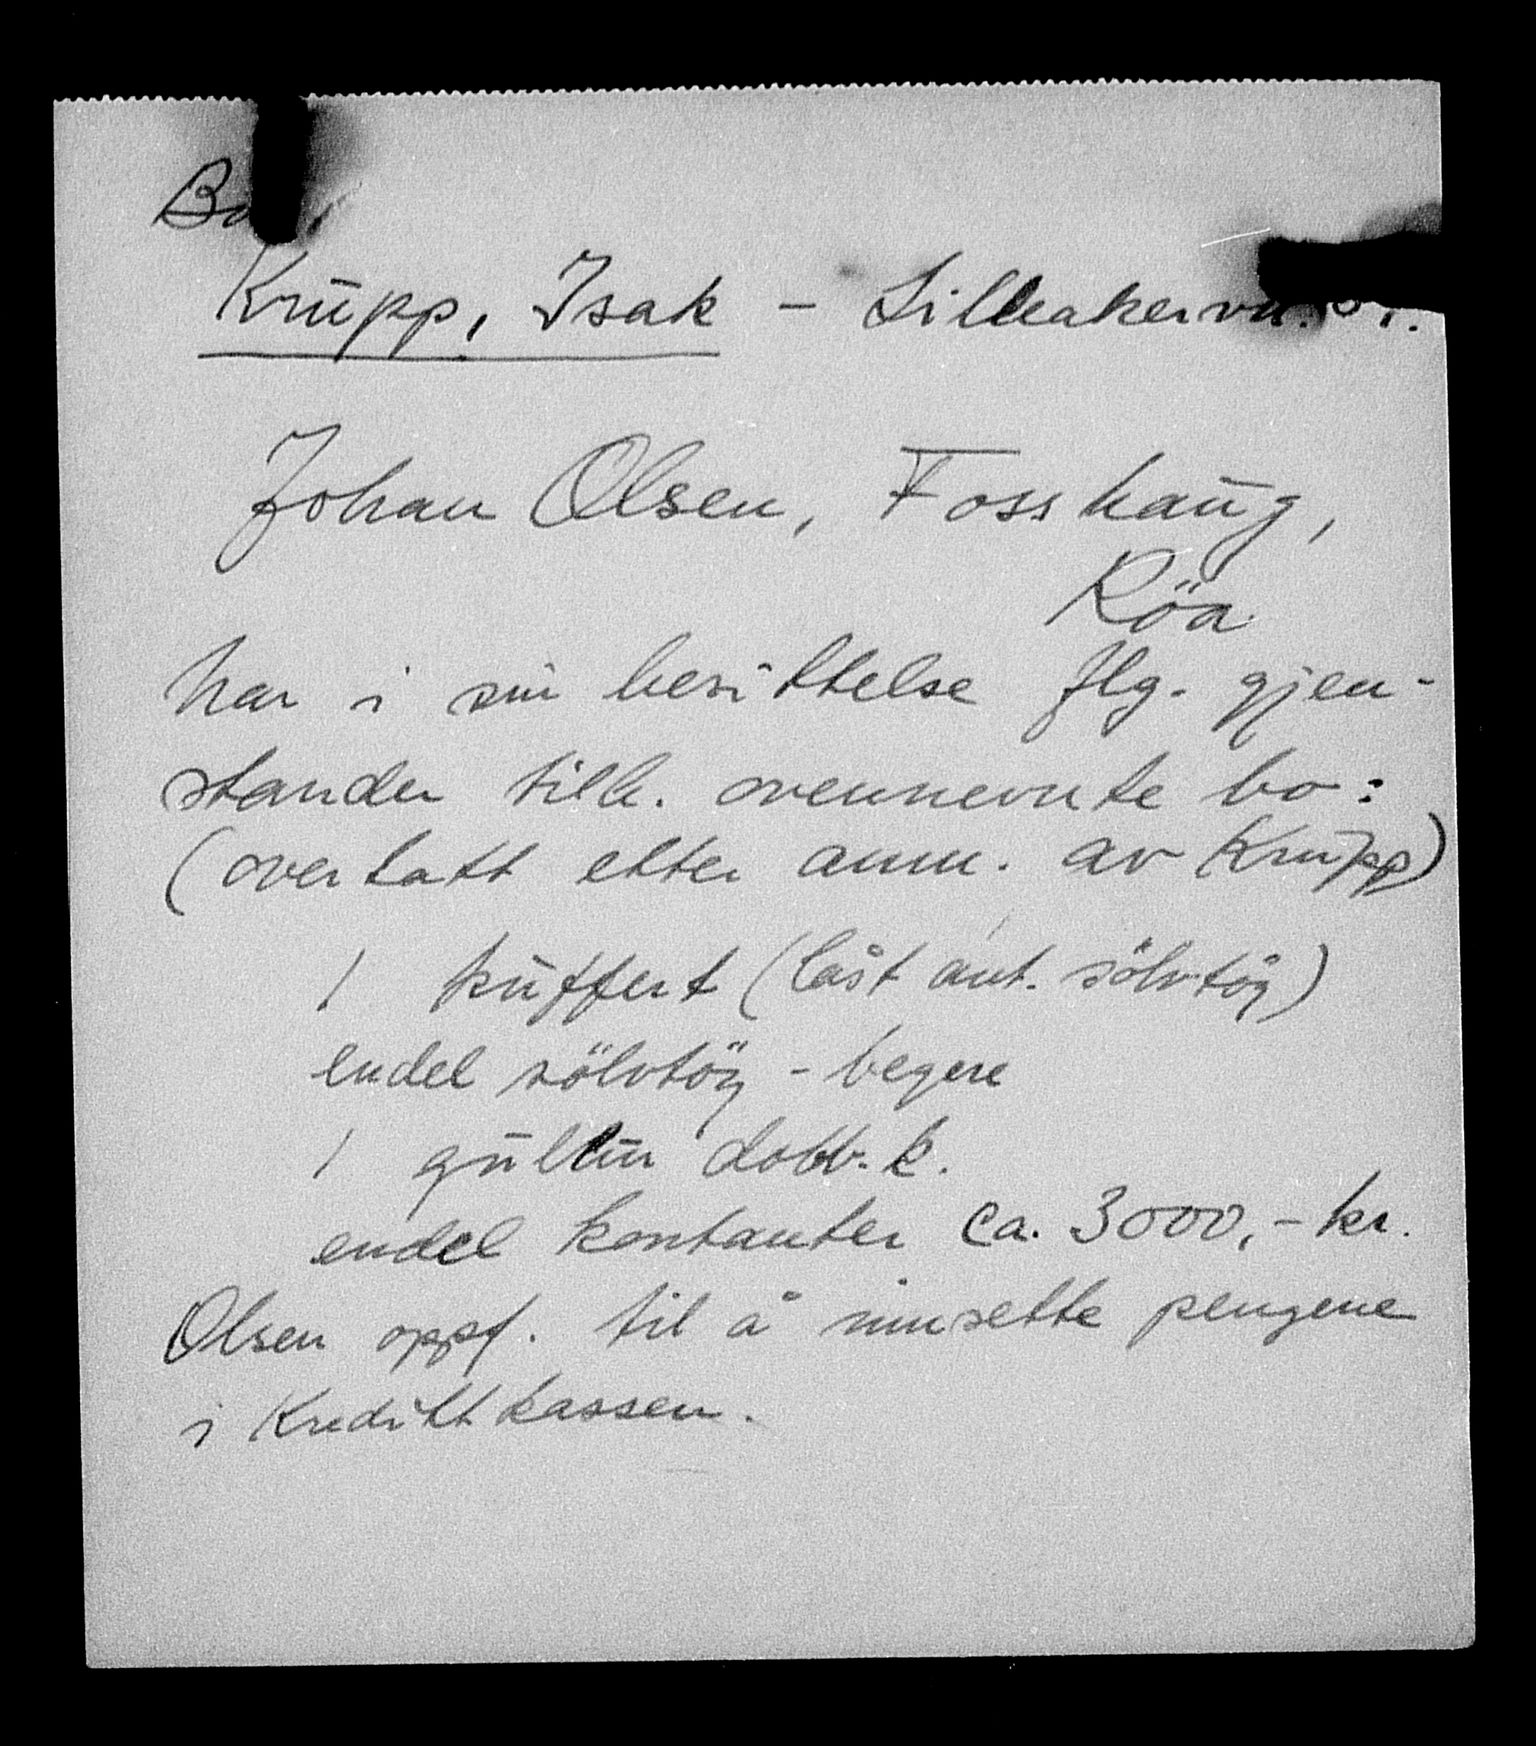 Krupp, Isak - Lilleakervn.
Johan Olsen, Fosshaug,
Röa
har i sin besittelse flg. gjen-
stander tilh. ovennevnte bo:
(overtatt etter anm. av Krupp)
1 kuffert (låst ant. sölvtög)
endel sölvtög - begere
1 gullur dobb. k.
endel kontanter ca. 3000,- kr.
Olsen oppf. til å innsette pengene
i Kredittkassen.